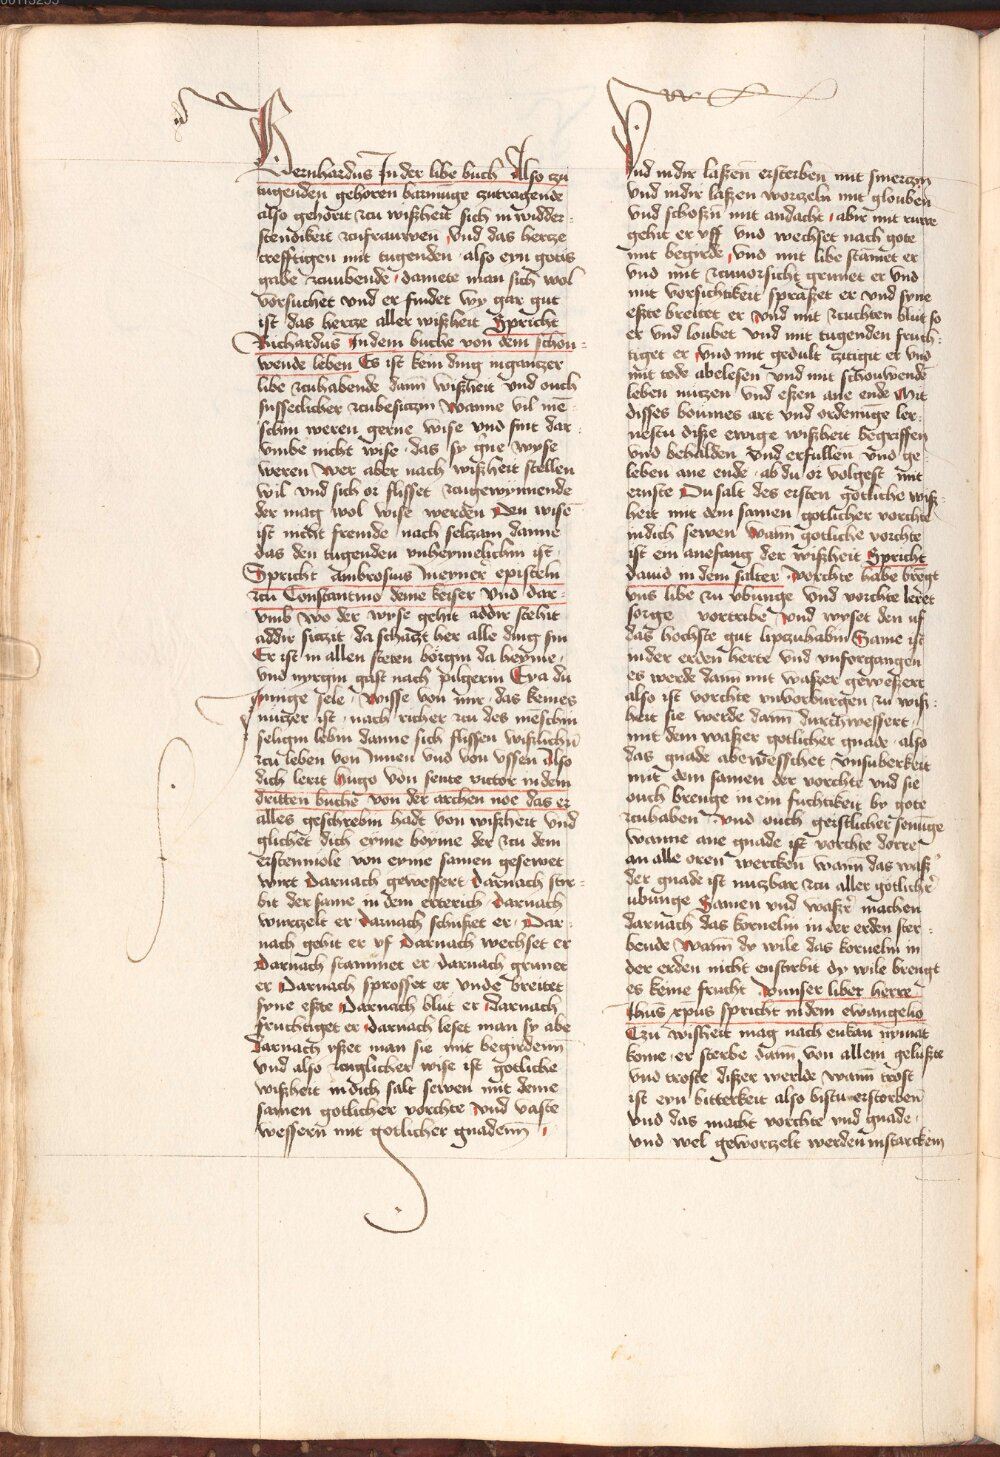 Bernhardus In der libe buch Also zu
tugenden gehoren barmunge zutragende
also gehorit zcu wißheit sich in widder-
stendikeit zcufrauwen vnd das hertze
crefftigen mit tugenden also eyn gotis
gabe zcuubende damete man sich wol
vorsuchet vnd er findet wy gar gut
ist das hertze aller wißheit Spricht
Richardus In dem buche von dem schou-
wende leben Es ist kein ding in gantzer
libe zcuhabende dann wißheit vnd ouch
sussetlicher zcubesitzin Wanne vil me-
schin weren gerne wise vnd sint dar-
vmbe nicht wise das sy gne wyse
weren Wer aber nach wißheit stellen
wil vnd sich or flisset zcugewynnende
der mag wol wise werden Den wise
ist nicht fremde nach selzam danne
das den tugenden vnheymelichin ist
Spricht Ambrosius In eyner episteln
zcu Constantino deme keiser vnd dar-
vmb wo der wyse gehit addir stehit
addir sitzit da schatzt her alle ding sin
Er ist in allen steten borgin da heyme
vnd nyrgin gast nach pilgerin Eya du
Innige sele Wisse von mir das keines
nutzer ist nach richer zcu des menschin
seligin lebin danne sich flissen wißlichn
zcu leben von Innen vnd von vssen Also
dich lerit hugo von sente victor in dem
dritten buche von der archen noe das er
alles geschrebin hadt von wißheit vnd
glichet dich eyme boyme der zcu dem
erstenmole von eyme samen gesewet
wirt Darnach gewessert Darnach stir-
bit der same in dem ertterich Darnach
wurtzelt er Darnach schußet er Dar-
nach gehit er vf Darnach wechset er
Darnach stammet er Darnach grunet
er Darnach sprosset er vnde breitet
syne eßte Darnach blut er Darnach
fruchtiget er Darnach leset man sy abe
Darnach yßet man sie mit begirdenn
vnd also zcuglicher wise ist gotliche
wißheit in dich salt sewen mit deme
samen gotlicher vorchte vnd vaste
wessern mit gotlicher gnadenn
Vnd in dir laßen ersterben mit smertzin
vnd in dir laßen wortzeln mit glouben
vnd schoßin mit andacht abir mit ruwe
gehit er vff vnd wechset nach gote
mit begirde vnd mit libe stamet er
vnd mit zcuuorsicht grunet er vnd
mit vorsichtikeit spraßet er vnd syne
eßte breitet er vnd mit zcuchten blut so
er vnd loubet vnd mit tugenden fruch-
tiget er vnd mit gedult zitigit er vnd
mit tode abelesen vnd mit schouwende
leben nutzen vnd eßen ane ende Mit
disses boumes art vnd ordenunge ler-
nestu diße ewige wißheit begriffen
vnd behalden vnd erfullen vnd ge-
leben ane ende ab du or volgest mit
ernste Du salt des ersten gotliche wiß-
heit mit dem samen gotlicher vorchte
in dich sewen Wann gotliche vorchte
ist ein anefang der wißheit Spricht
dauid in dem salter vorchte habe brengt
vns libe zu vbunge vnd vorchte leret
sorge vortribe vnd wyset den uf
das hochste gut lipzuhabin Same ist
in der erden herte vnd vnforgangen
es werde dann mit waßer geweßert
also ist vorchte vnvorburgen zu wiß-
heit sie werde dann durchwessert
mit dem waßer gotlicher gnade also
das gnade abewesschet vnsuberkeit
mit dem samen der vorchte vnd sie
ouch brenge in ein fuchtikeit by gote
zcuhaben vnd ouch geistlicher senunge
wanne ane gnade ist vorchte dorre
an alle oren wercken wann das waß
der gnade ist nutzbar zcu aller gotlichr
ubunge Samen vnd waßer machen
darnach das kornelin in der erden ster-
bende Wann dy wile das kornelin in
der erden nicht enstirbit dy wile brengt
es keine frucht vnnser liber herre
Ihus xpus spricht in dem ewangelio
Czu wisheit mag nach enkan nymat
kome er sterbe dann von allem gelußte
vnd troste dißer werlde wann trost
ist eyn bitterkeit also bistu erstorben
vnd das macht vorchte vnd gnade
vnd wel gewortzelt werden in starckem